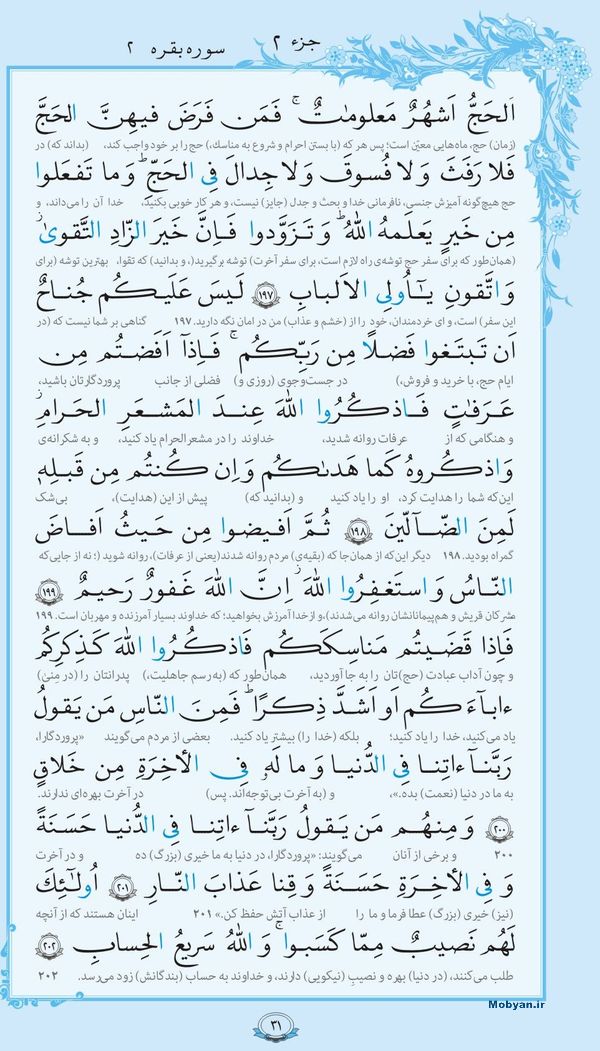 جزء ۲
سوره بقره ۲
اَلحَجُّ اَشهُرٌ مَعلوماتٌ ۚ فَمَن فَرَضَ فیهِنَّ الحَجَّ
(زمان) حج، ماه‌هایی معیّن است؛ پس هر که (با بستن احرام و شروع به مناسك،) حج را بر خود واجب کند، (بداند که) در
فَلا رَفَثَ وَلا فُسوقَ وَلا جِدالَ فِی الحَجِّ ۗ وَما تَفعَلوا
حج هیچ‌گونه آمیزش جنسی، نافرمانی خدا و بحث و جدل (جایز) نیست، و هر کار خوبی بکنید، خدا آن را می‌داند، و
مِن خَیرٍ یَعلَمهُ اللهُ ۗ وَ تَزَوَّدوا فَاِنَّ خَیرَ الزّادِ التَّقویٰ ۚ
(همان‌طور که برای سفر حج توشه‌ی راه لازم است، برای سفر آخرت) توشه برگیرید(، و بدانید) که تقوا، بهترین توشه (برای
وَاتَّقونِ یٰٓاُولِی الاَلبابِ ۱۹۷ لَیسَ عَلَیکُم جُناحٌ
این سفر) است، و ای خردمندان، خود را از (خشم و عذاب) من در امان نگه دارید. ۱۹۷ گناهی بر شما نیست که (در
اَن تَبتَغوا فَضلًا مِن رَبِّکُم ۚ فَاِذآ اَفَضتُم مِن
ایام حج، با خرید و فروش،) در جست‌وجوی (روزی و) فضلی از جانب پروردگارتان باشید،
عَرَفٰتٍ فَاذکُرُوا اللهَ عِندَ المَشعَرِ الحَرامِ ۖ
و هنگامی که از عرفات روانه شدید، خداوند را در مشعرالحرام یاد کنید، و به شکرانه‌ی
وَاذکُروهُ کَما هَدىٰکُم وَاِن کُنتُم مِن قَبلِهٖ
این‌که شما را هدایت کرد، او را یاد کنید و (بدانید که) پیش از این (هدایت)، بی‌شک
لَمِنَ الضّآلّینَ ۱۹۸ ثُمَّ اَفیضوا مِن حَیثُ اَفاضَ
گمراه بودید. ۱۹۸ دیگر این‌که از همان‌جا که (بقیه‌ی) مردم روانه شدند(یعنی از عرفات)، روانه شوید (؛ نه از جایی‌که
النّاسُ وَاستَغفِرُوا اللهَ ۚ اِنَّ اللهَ غَفورٌ رَحیمٌ ۱۹۹
مشرکان قریش و هم‌پیمانانشان روانه می‌شدند)، و از خدا آمرزش بخواهید؛ که خداوند بسیار آمرزنده و مهربان است. ۱۹۹
فَاِذا قَضَیتُم مَناسِکَکُم فَاذکُرُوا اللهَ کَذِکرِکُم
و چون آداب عبادت (حج)تان را به جا آوردید، همان‌طور که (به رسم جاهلیت،) پدرانتان را (در مِنیٰ)
ءابآءَکُم اَو اَشَدَّ ذِکرًا ۗ فَمِنَ النّاسِ مَن یَقولُ
یاد می‌کنید، خدا را یاد کنید؛ بلکه (خدا را) بیشتر یاد کنید. بعضی از مردم می‌گویند «پروردگارا،
رَبَّنآ ءاتِنا فِی الدُّنیا وَ ما لَهٗ فِی الأخِرَةِ مِن خَلاقٍ
به ما در دنیا (نعمت) بده.»، و (به آخرت بی‌توجه‌اند. پس) در آخرت بهره‌ای ندارند.
۲۰۰ وَ مِنهُم مَن یَقولُ رَبَّنآ ءاتِنا فِی الدُّنیا حَسَنَةً
۲۰۰ و برخی از آنان می‌گویند: «پروردگارا، در دنیا به ما خیری (بزرگ) ده و در آخرت
وَ فِی الأخِرَةِ حَسَنَةً وَ قِنا عَذابَ النّارِ ۲۰۱ اُولٰٓئِكَ
(نیز) خیری (بزرگ) عطا فرما و ما را از عذاب آتش حفظ کن.» ۲۰۱ اینان هستند که از آنچه
لَهُم نَصیبٌ مِمّا کَسَبوا ۚ وَ اللهُ سَریعُ الحِسابِ ۲۰۲
طلب می‌کنند، (در دنیا) بهره و نصیب (نیکویی) دارند، و خداوند به حساب (بندگانش) زود می‌رسد. ۲۰۲
Mobyan.ir
۳۱